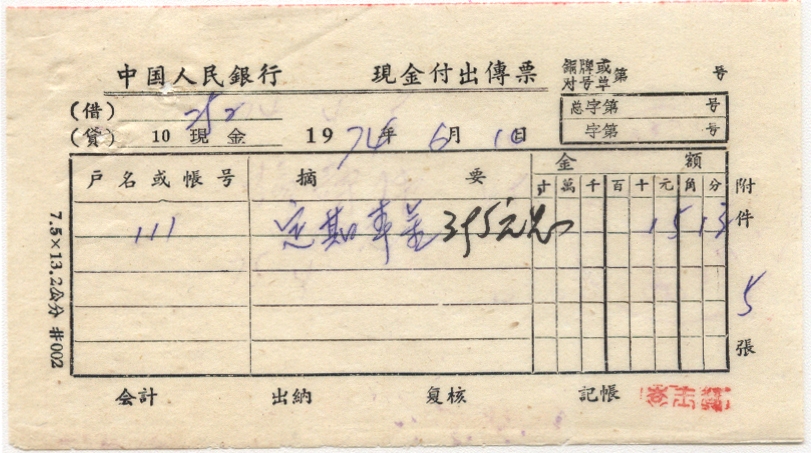 中国人民銀行 現金付出傳票
銅牌或对号单第 号
(借) 252
总字第 号
(贷) 10 現金 1974年6月10日
字第 号
戶名或帳号 摘要 金額
计 萬 千 百 十 元 角 分
111 定期 395元 1513
附件 5 張
7.5×13.2公分 #002
会計 出納 复核 記帳